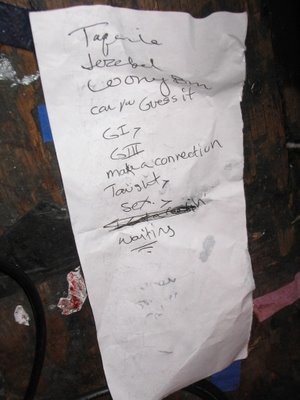 Taperie
Jezebel
can you Guess it
GI >
GIII
make a connection
Taight >
sex. >
waiting